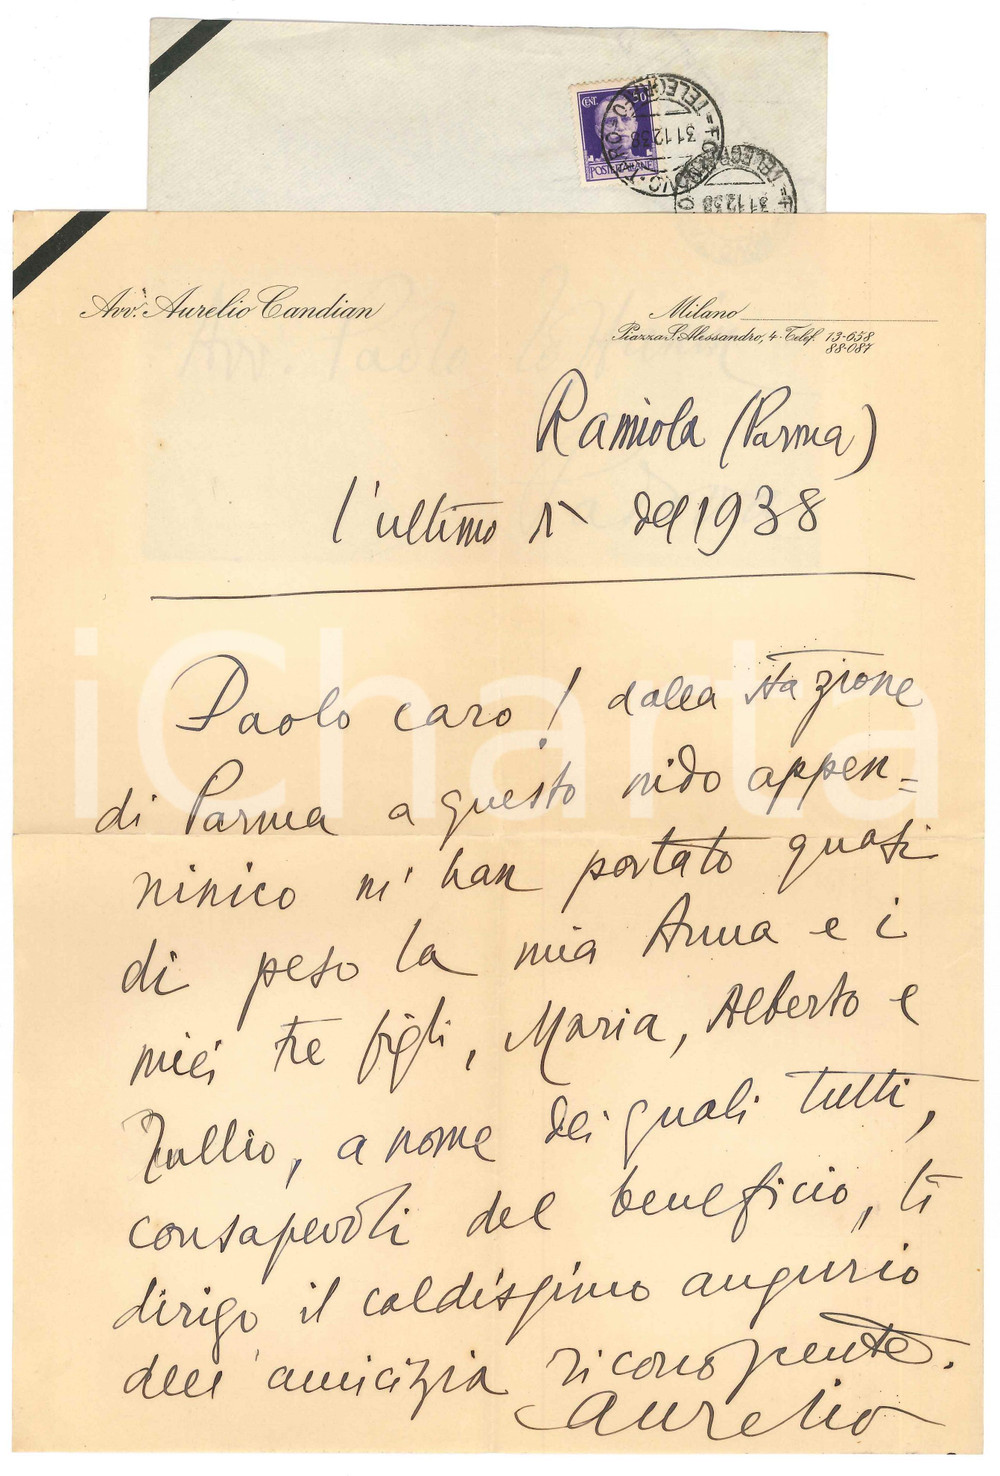 CENT. 50
POSTE ITALIANE
31.12.38
31.12.38
Avv. Aurelio Candian
Milano
Piazza S. Alessandro, 4 - Telef. 13-658
88-087
Ramiola (Parma)
l'ultimo dì del 1938
Paolo caro! dalla stazione
di Parma a questo nido appen=
ninico m'han portato quasi
di peso la mia Anna e i
miei tre figli, Maria, Alberto e
Tullio, a nome dei quali tutti,
consapevoli del beneficio, ti
dirigo il caldissimo augurio
dell'amicizia riconoscente.
Aurelio
iCharta